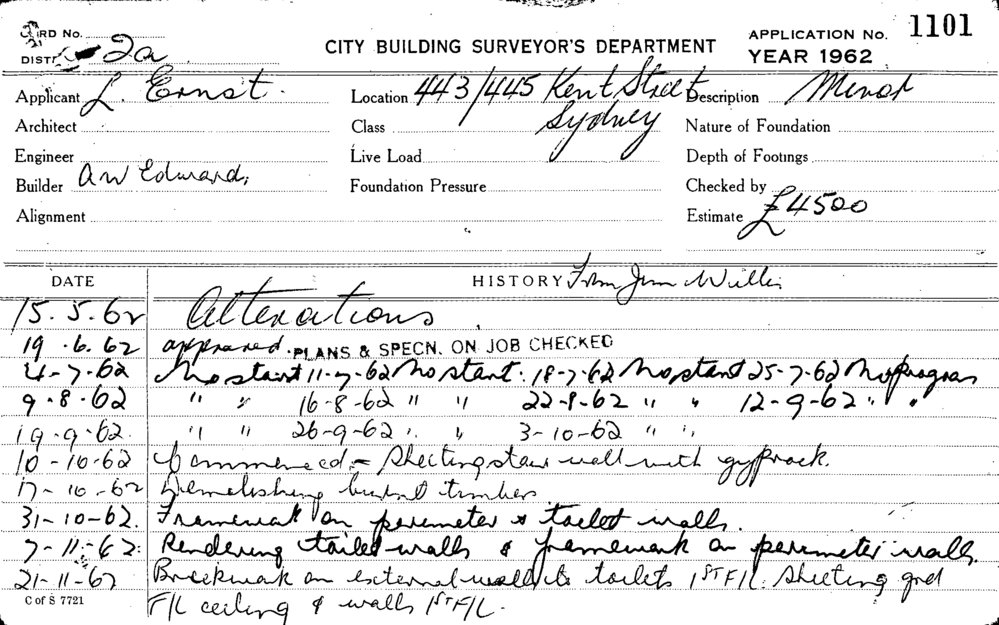 CARD No.
DISTT. 2a
CITY BUILDING SURVEYOR'S DEPARTMENT
APPLICATION No. 1101
YEAR 1962
Applicant L. Ernst.
Location 443/445 Kent Street Sydney
Description Minor
Architect
Class
Nature of Foundation
Engineer
Live Load
Depth of Footings
Builder AW Edwards
Foundation Pressure
Checked by
Alignment
Estimate £4500
DATE HISTORY From Jim Willis
15.5.62 Alterations
19.6.62 approved. PLANS & SPECN. ON JOB CHECKED
4-7-62 No start 11-7-62 No start. 18-7-62 No start 25-7-62 No progress
9.8.62 " " 16-8-62 " " 22-8-62 " " 12-9-62 " "
19-9-62. " " 26-9-62 " " 3-10-62 " "
10-10-62 Commenced - Sheeting stair wall with gyprock.
17-10-62 Demolishing burnt timbers
31-10-62. Framework on perimeter & toilet walls.
7-11-62: Rendering toilet walls & framework on perimeter walls.
21-11-62 Brickwork on external walls to toilets 1ST F/L. Sheeting grd
C of S 7721 F/L ceiling & walls 1ST F/L.